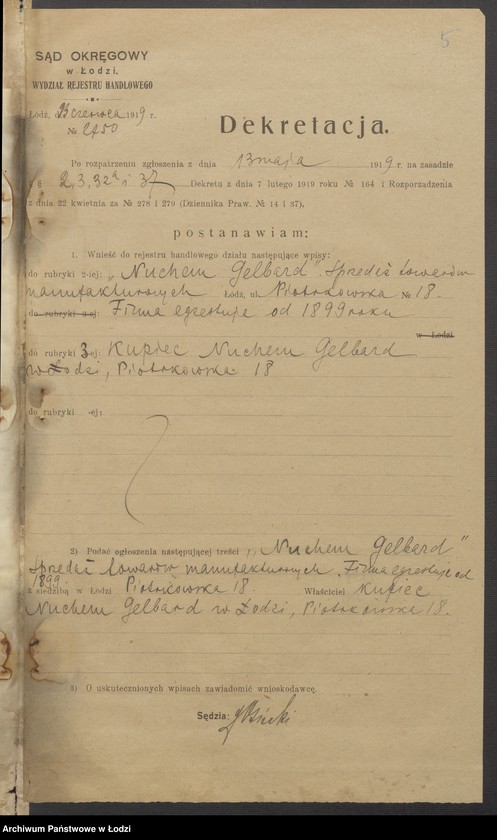 5
SĄD OKRĘGOWY
w Łodzi.
WYDZIAŁ REJESTRU HANDLOWEGO
Łódź, d. czerwca 1919 r.
№
Dekretacja.
Po rozpatrzeniu zgłoszenia z dnia 13 maja 1919 r. na zasadzie
§ 2, 3, 32a i 37 Dekretu z dnia 7 lutego 1919 roku № 164 i Rozporządzenia
z dnia 22 kwietnia za № 278 i 279 (Dziennika Praw. № 14 i 37).
postanawiam:
1. Wnieść do rejestru handlowego działu następujące wpisy:
do rubryki 2-iej: „Nuchem Gelbard". Sprzedaż towarów
manufakturowych Łódź, ul. Piotrkowska № 18.
do rubryki -ej: Firma egzystuje od 1899 roku
w Łodzi
do rubryki 3 ej: Kupiec Nuchem Gelbard
w Łodzi, Piotrkowska 18
do rubryki -ej:
2) Podać ogłoszenia następującej treści „Nuchem Gelbard"
Sprzedaż towarów manufakturowych. Firma egzystuje od
1899.
z siedzibą w Łodzi Piotrkowska 18. Właściciel Kupiec
Nuchem Gelbard w Łodzi, Piotrkowska 18.
3) O uskutecznionych wpisach zawiadomić wnioskodawcę.
Sędzia:
Archiwum Państwowe w Łodzi